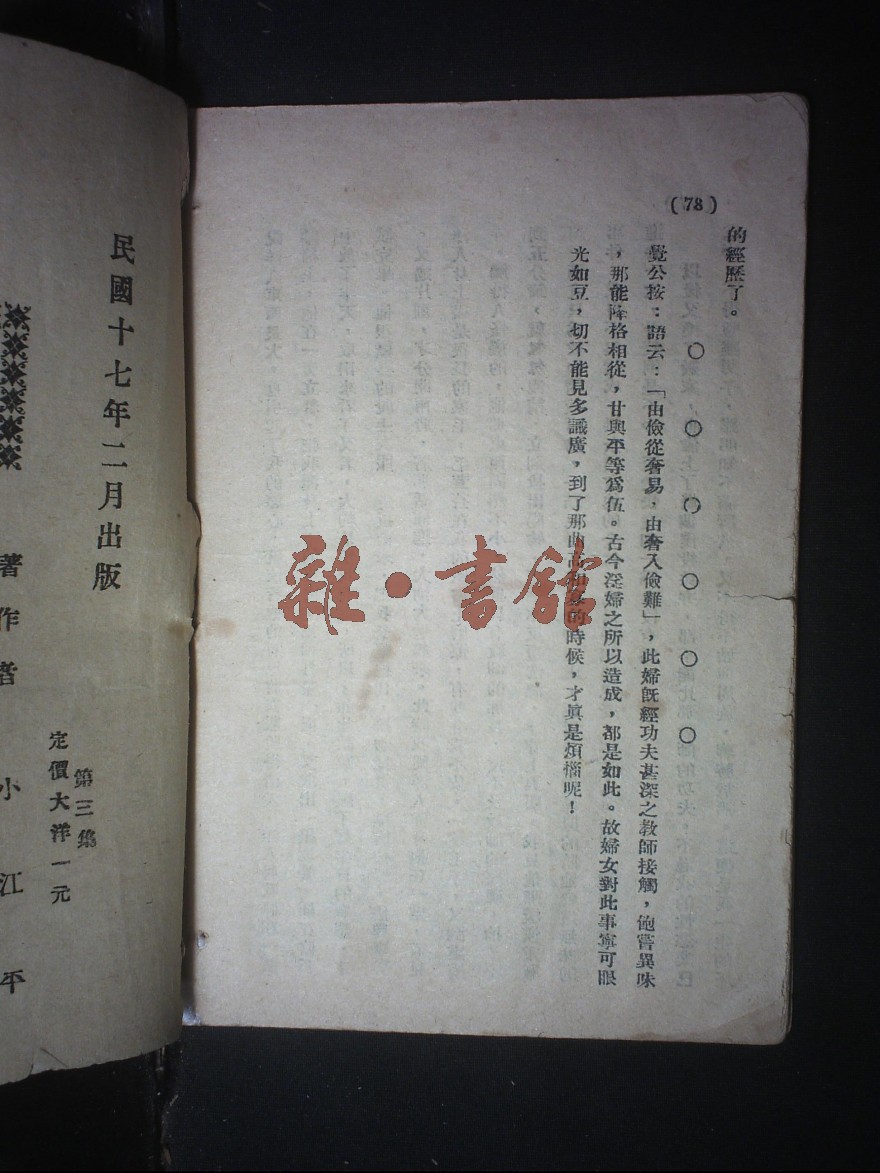 (78)
的經歷了。
○ ○ ○ ○ ○ ○
覺公按：語云：「由儉從奢易，由奢入儉難」，此婦既經功夫甚深之教師接觸，飽嘗異味
，那能降格相從，甘與平等爲伍。古今淫婦之所以造成，都是如此。故婦女對此事寧可眼
光如豆，切不能見多識廣，到了那曲高和寡的時候，才眞是煩惱呢！
民國十七年二月出版
第三集
定價大洋一元
著作者 小江平
雜·書館